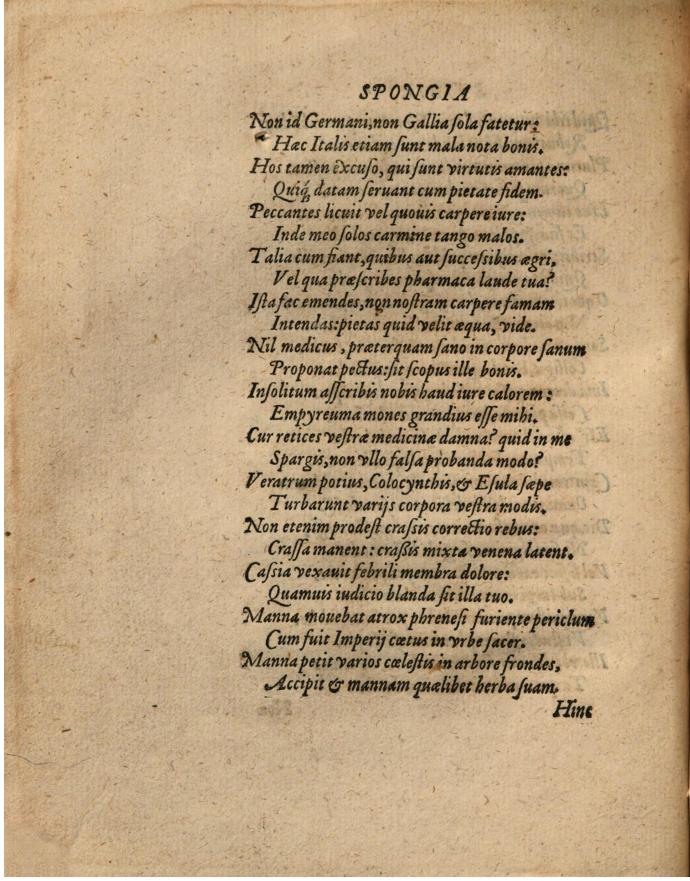 SPONGIA
Non id Germani, non Gallia ſola fatetur:
Hæc Italis etiam ſunt mala nota bonis.
Hos tamen excuſo, qui ſunt virtutis amantes:
Quiq; datam ſeruant cum pietate fidem.
Peccantes licuit vel quouis carpere iure:
Inde meo ſolos carmine tango malos.
Talia cum fiant, quibus aut ſucceſsibus ægri,
Vel qua præſcribes pharmaca laude tua?
Iſta fac emendes, non noſtram carpere famam
Intendas: pietas quid velit æqua, vide.
Nil medicus, præterquam ſano in corpore ſanum
Proponat pectus: ſit ſcopus ille bonis.
Inſolitum aſſcribis nobis haud iure calorem:
Empyreuma mones grandius eſſe mihi.
Cur retices veſtræ medicinæ damna? quid in me
Spargis, non vllo falſa probanda modo?
Veratrum potius, Colocynthis, & Eſula ſæpe
Turbarunt varijs corpora veſtra modis.
Non etenim prodeſt craſsis correctio rebus:
Craſſa manent: craſsis mixta venena latent.
Caſsia vexauit febrili membra dolore:
Quamuis iudicio blanda ſit illa tuo.
Manna mouebat atrox phreneſi furiente periclum
Cum fuit Imperij cœtus in vrbe ſacer.
Manna petit varios cœleſtis in arbore frondes,
Accipit & mannam quælibet herba ſuam.
Hinc